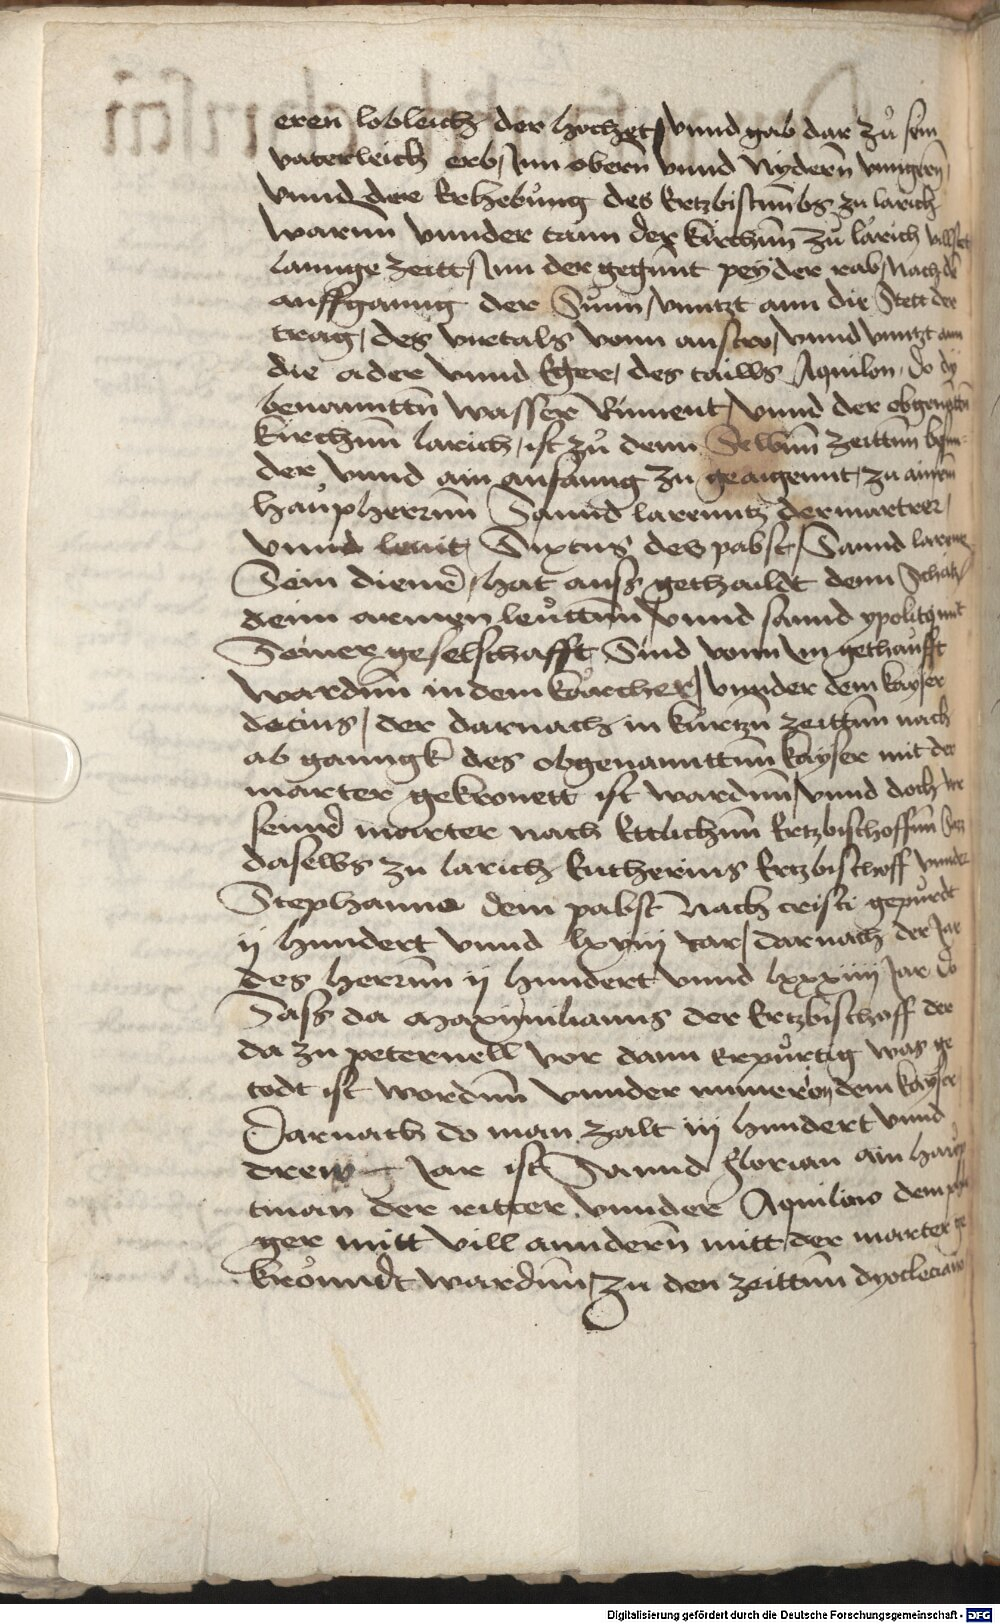 eren lobleich der hochzet / vnnd gab dar zů sein
vaterleich erb / Inn obern vnnd Nydern̄ vnngern̄ /
vnnd der Erhebůng des Ertzbistumbs zu larich
Warnn vnnder tann der kirchnn zů larich
lannge zeitt / Inn der gegnnt pey der rab / Nach
auffganng der Sunn / vnntzt ann die Stett der
trag / des vrtals vonn austro / vnnd vnntzt ann
die ader vnnd des Aquilon / do dy
benannttn̄ wasser Rinnent / vnnd der obgenāttn̄
kirchnn larich / ist zů denn Selbnn zeittnn
der vnnd ain anfanng zu geaigennt / zu ainem
haůpherrnn Sannd larenntz der martrer /
vnnd leuit / Sixtus des pabst / Sannd larenn
Sein diener / hat auss gethaildt denn Schatz
denn armen leůttnn / vnnd sannd ypolitq mit
Seiner geselschafft Sind vonn Im gethaufft
wardnn in dem kärcher / vnnder dem kayser
decius / der darnach in kůrtzn̄ zeittnn nach
ab ganngk des obgenannttnn kayser mit der
marter gekronett ist wardnn / vnnd doch vor
seiner marter nach Ettlichnn Ertzbischoffnn
daselbs zu larich Eutherius Ertzbischoff vnnder
Stephanno dem pabst Nach cristi gepůrdt
ij hundert vnnd lxviij Iar / darnach der Iar
des herrnn ij hundert vnnd lxxxiiij Iar Do
Sass da Maximilianus der Ertzbischoff der
da zu peternell vor dann erpůrtig was ge
todt ist wordnn vnnder numerian dem kayser
Darnach do man zalt iij hundert vnnd
drew Iar ist Sannd Florian ain haup
tman der ritter vnnder Aquilino dem
ger mitt vill anndern̄ mitt der marter ge
krönndt wardnn / zu den zeittnn dyocleciano
Digitalisierung gefördert durch die Deutsche Forschungsgemeinschaft - DFG